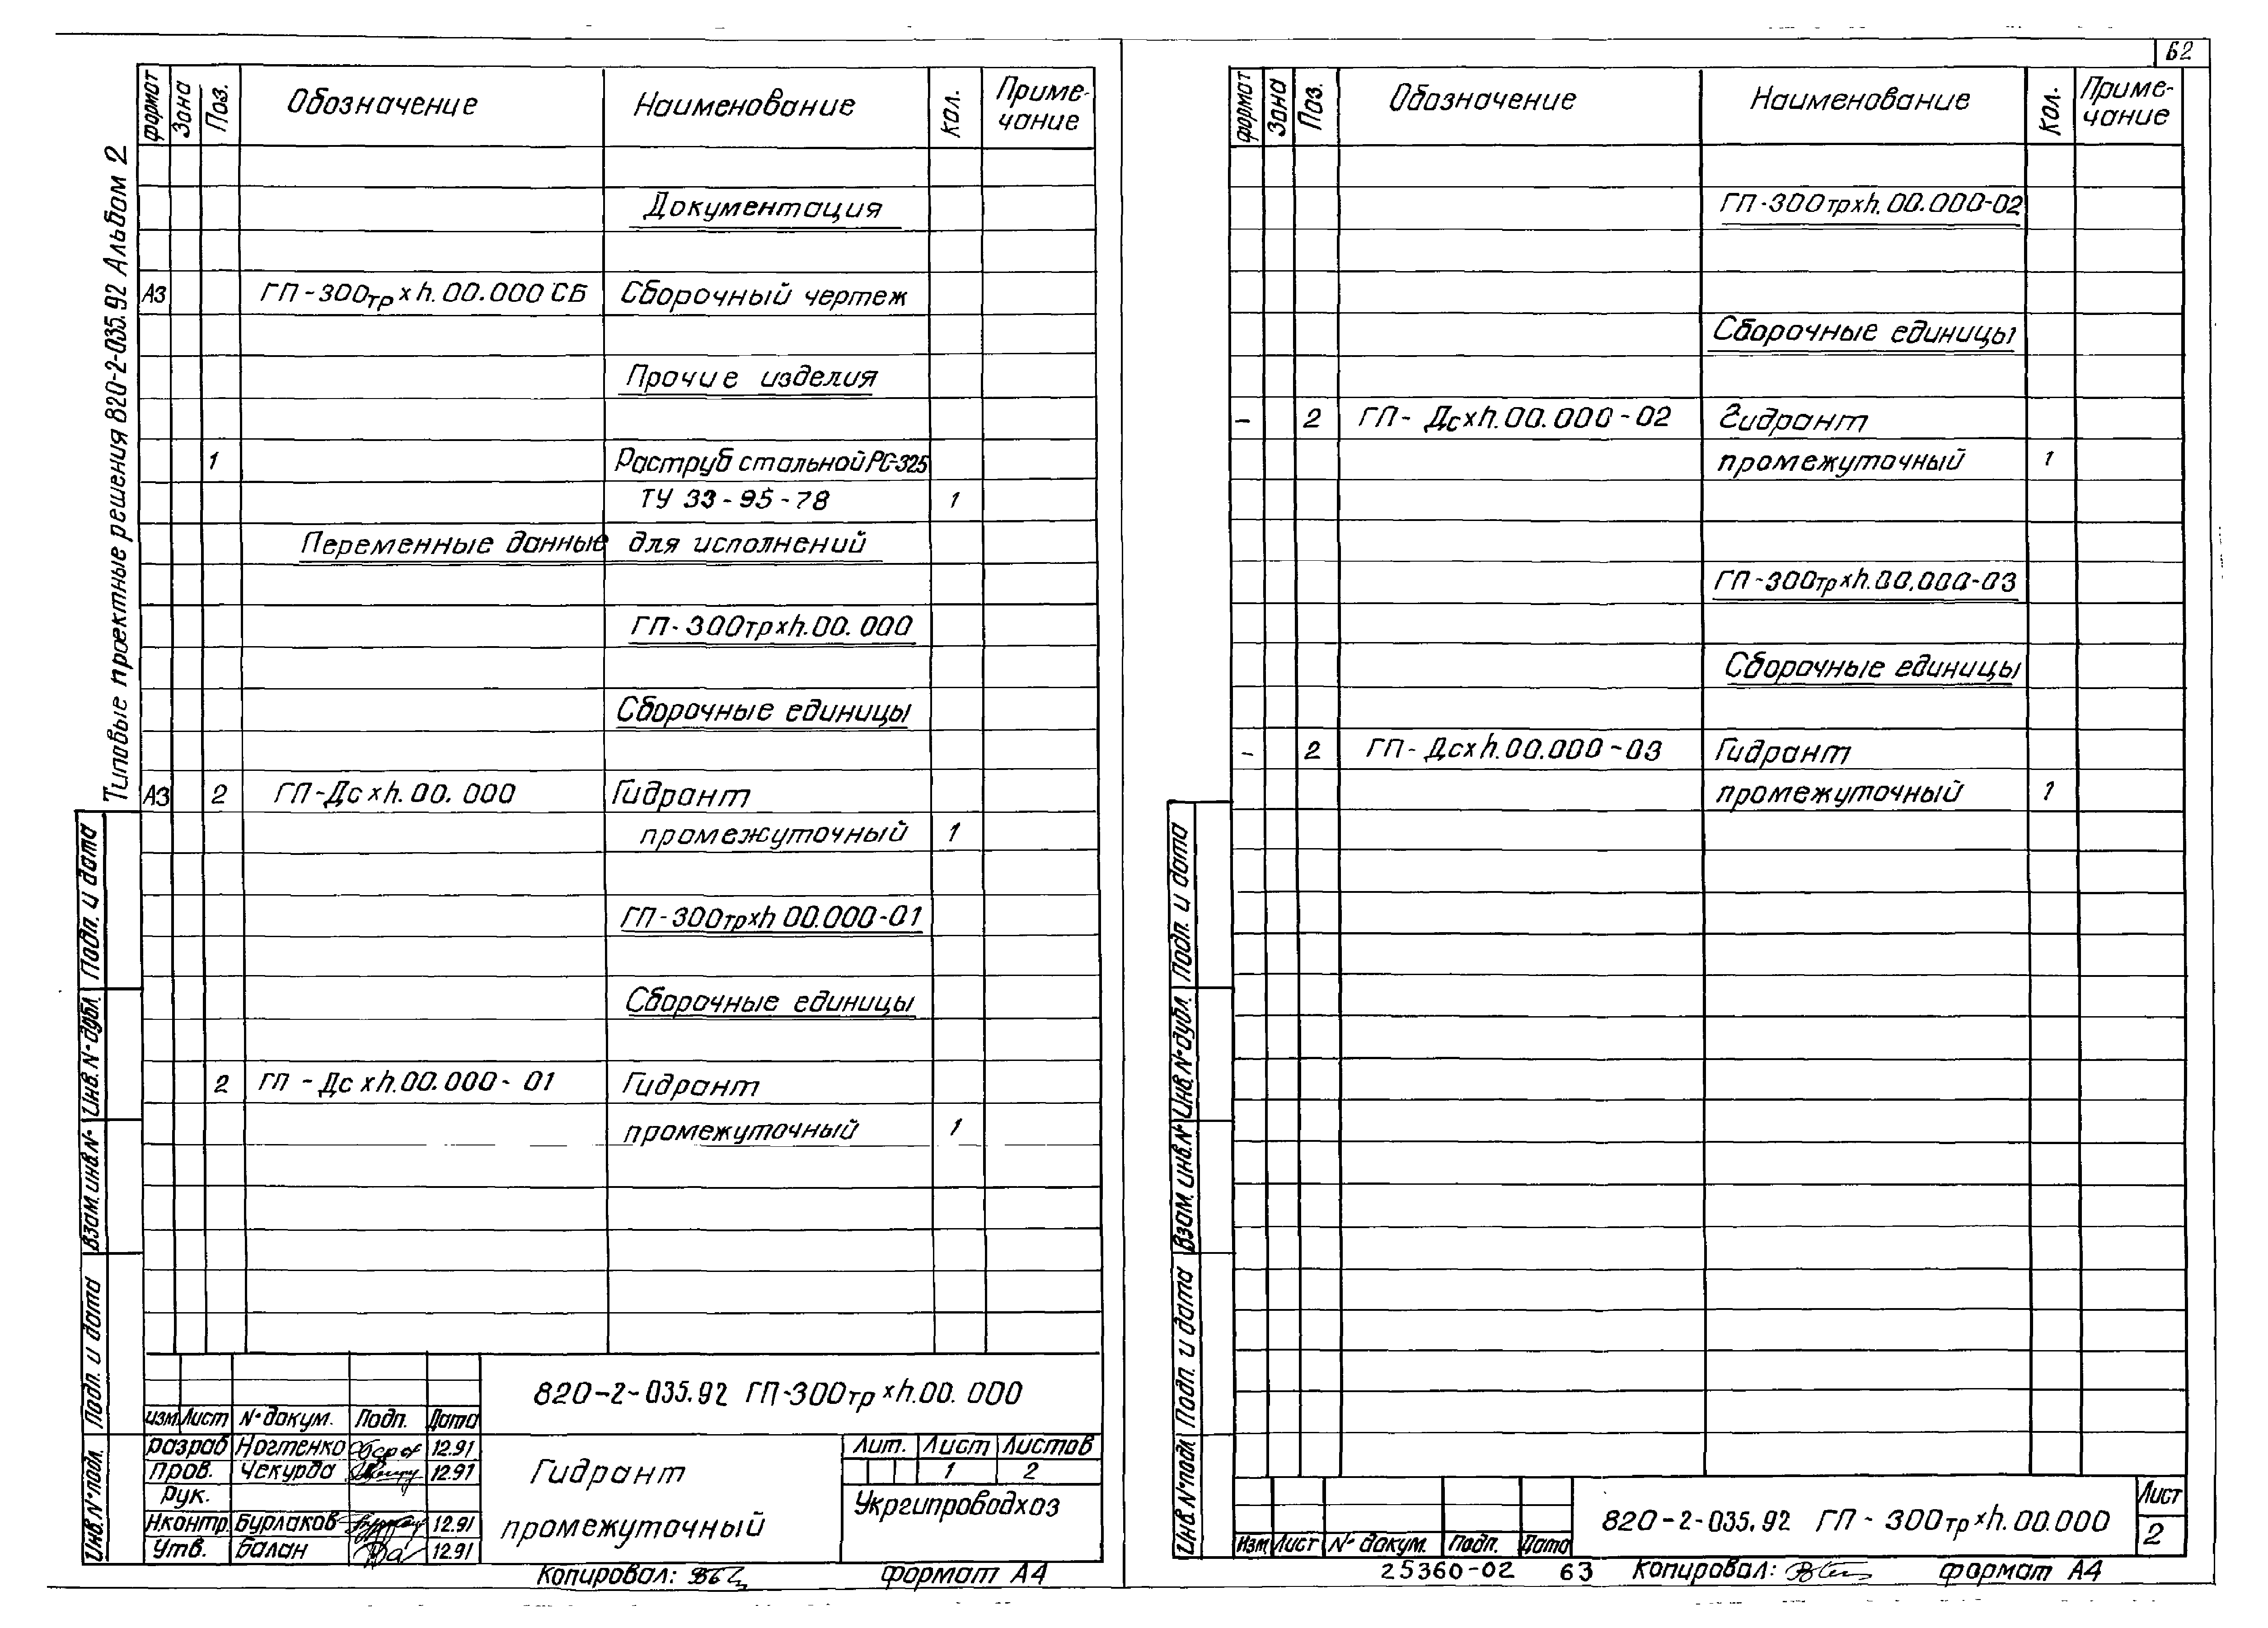 Типовые проектные решения 820-2-035.92 Альбом 2
формат Зона Поз. Обозначение Наименование Кол. Приме-
чание
Документация
А3 ГП-300тр х h.00.000 СБ Сборочный чертеж
Прочие изделия
1 Раструб стальной РС-325
ТУ 33-95-78 1
Переменные данные для исполнений
ГП-300тр х h.00.000
Сборочные единицы
А3 2 ГП-Дс х h.00.000 Гидрант
промежуточный 1
ГП-300тр х h 00.000-01
Сборочные единицы
2 ГП-Дс х h.00.000-01 Гидрант
промежуточный 1
Подп. и дата
Инв. № дубл.
Взам. инв. №
Подп. и дата
Инв. № подл.
820-2-035.92 ГП-300тр х h.00.000
изм Лист № докум. Подп. Дата
разраб Ногтенко 12.91
пров. Чекурда 12.91
рук.
Н.контр. Бурлаков 12.91
Утв. Балан 12.91
Гидрант
промежуточный
Лит. Лист Листов
1 2
Укргипроводхоз
Копировал: формат А4
62
формат Зона Поз. Обозначение Наименование Кол. Приме-
чание
ГП-300тр х h.00.000-02
Сборочные единицы
- 2 ГП-Дс х h.00.000-02 Гидрант
промежуточный 1
ГП-300тр х h.00.000-03
Сборочные единицы
- 2 ГП-Дс х h.00.000-03 Гидрант
промежуточный 1
Подп. и дата
Инв. № дубл.
Взам. инв. №
Подп. и дата
Инв. № подл
820-2-035.92 ГП-300тр х h.00.000
Лист
2
Изм Лист № докум. Подп. Дата
25360-02 63 Копировал: формат А4